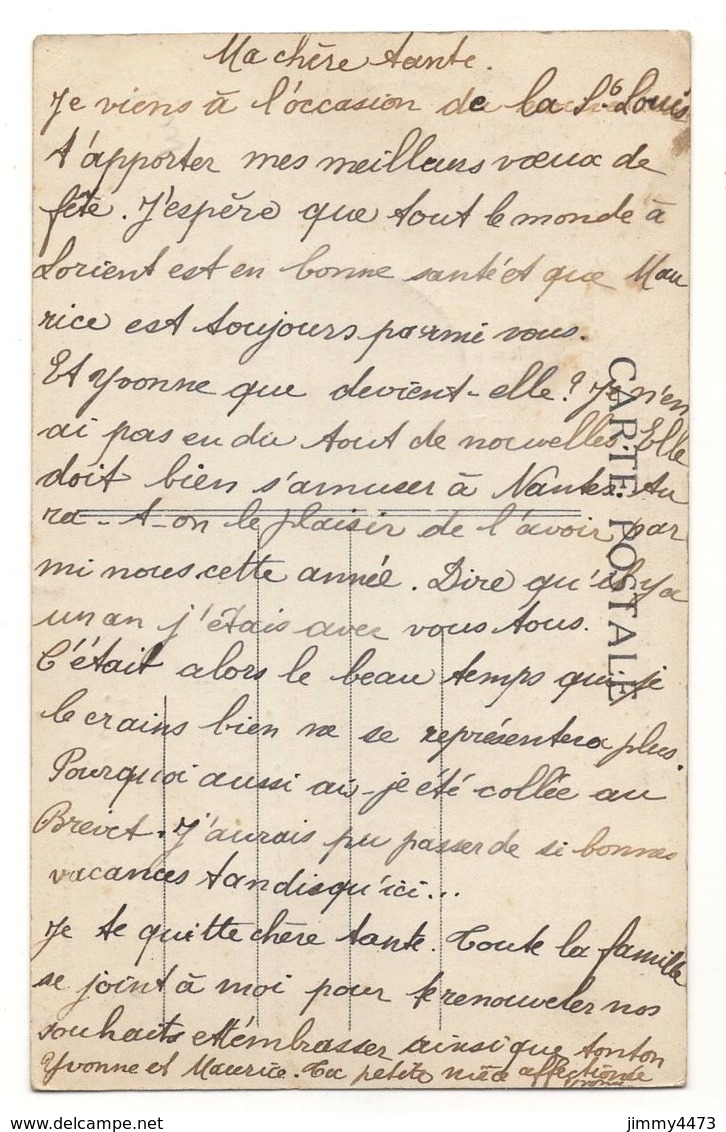 Ma chère tante.
Je viens à l'occasion de la St Louis
t'apporter mes meilleurs vœux de
fête. J'espère que tout le monde à
Lorient est en bonne santé et que Mau
rice est toujours parmi vous.
Et Yvonne que devient-elle? Je n'en
ai pas eu du tout de nouvelles. Elle
doit bien s'amuser à Nantes. Au
ra-t-on le plaisir de l'avoir par
mi nous cette année. Dire qu'il y a
un an j'étais avec vous tous.
C'était alors le beau temps qui je
le crains bien ne se représentera plus.
Pourquoi aussi ai-je été collée au
Brevet. J'aurais pu passer de si bonnes
vacances tandis qu'ici...
Je te quitte chère tante. Toute la famille
se joint à moi pour te renouveler nos
souhaits et t'embrasser ainsi que tonton
Yvonne et Maurice. Ta petite nièce affectionnée
CARTE POSTALE
jimmy4473